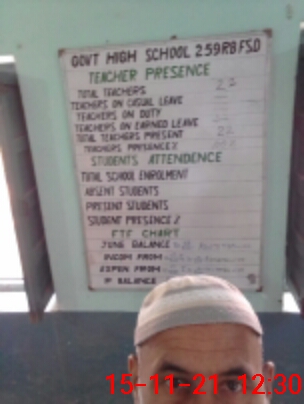 GOVT HIGH SCHOOL 259RB FSD
TEACHER PRESENCE
TOTAL TEACHERS 22
TEACHERS ON CASUAL LEAVE
TEACHERS ON DUTY
TEACHERS ON EARNED LEAVE
TOTAL TEACHERS PRESENT 22
TEACHERS PRESENCE%
STUDENTS ATTENDENCE
TOTAL SCHOOL ENROLMENT
ABSENT STUDENTS
PRESENT STUDENTS
STUDENT PRESENCE %
FTF CHART
JUNE BALANCE
INCOM FROM
EXPEN FROM
P BALANCE
15-11-21 12:30